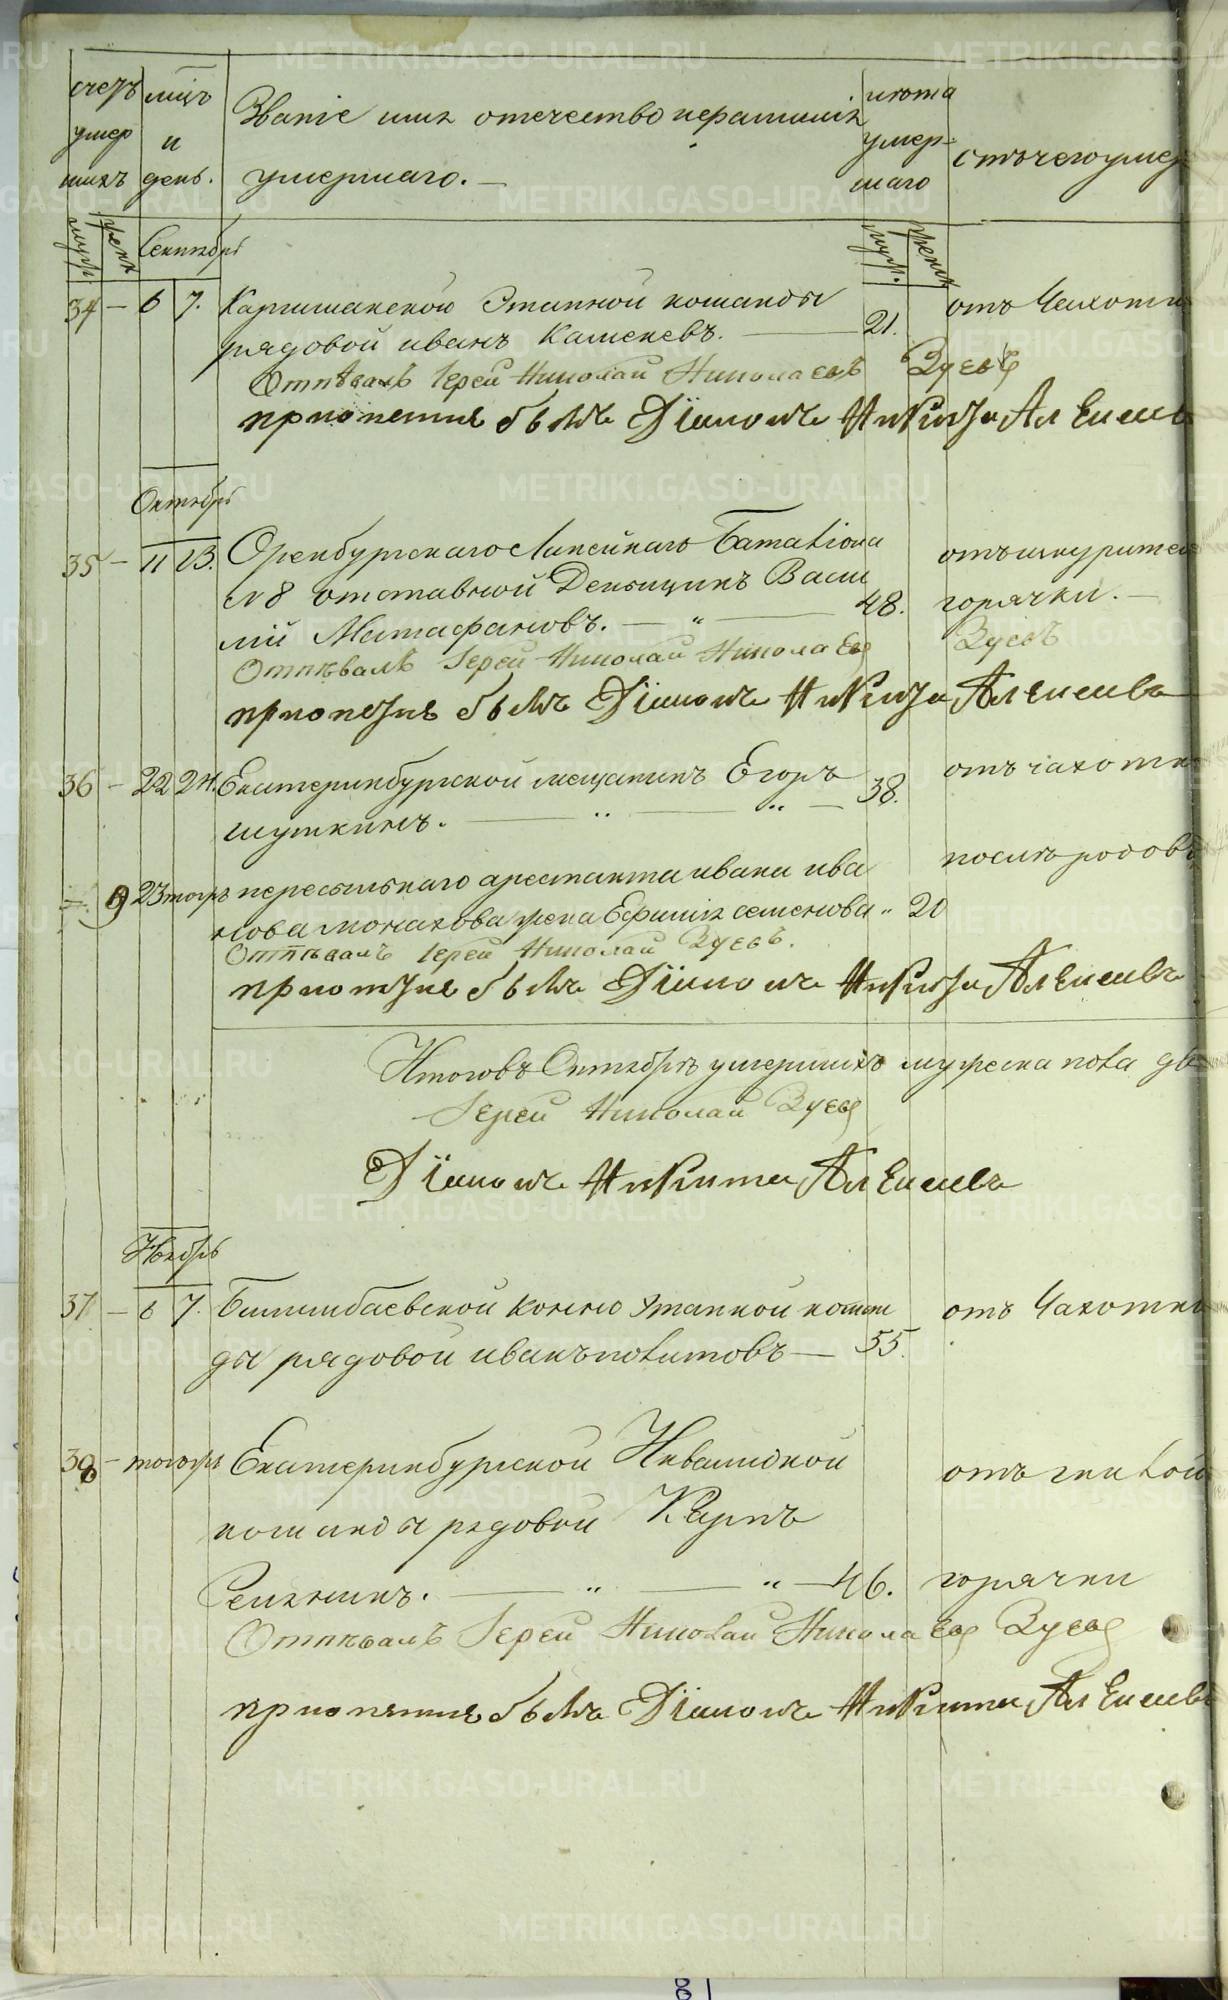 счетъ умер шихъ
мѣцъ и день.
Званіе имя отечество и фамилія
умершаго. —
лѣта умер- шаго
отъ чего умер
муж. женс Сентябрь муж. женск
34 – 6 7. Каргишанской Этапной команды
рядовой иванъ Каменевъ. — 21. отъ Чахотки
Отпѣвалъ Іерей Николай Николаевъ Зуевъ
при опетіи былъ Діаконъ Никита Алексеевъ
Октябрь
35 – 11 13. Оренбургскаго Линейнаго Баталіона
№ 8 отставной Деньщикъ Васи
лій Матафановъ. — " — 48. горячки. —
Отпѣвалъ Іерей Николай Николаевъ Зуевъ
при опетіи былъ Діаконъ Никита Алексеевъ
36 – 22 24. Екатеринбургской мещанинъ Егоръ
шуткинъ. — " — " — 38. отъ чахотки
9 23 тогожъ пересыльнаго арестанта ивана ива
нова монахова жена Ефимія семенова „ 20 послѣ родовъ
Отпѣвалъ Іерей Николай Зуевъ.
при отпетіи былъ Діаконъ Никита Алексеевъ
Итого въ Октябрѣ умершихъ мужеска пола два
Іерей Николай Зуевъ
Діаконъ Никита Алексеевъ
Ноябрь
37 – 6 7. Билимбаевской конно этапной коман
ды рядовой иванъ политовъ — 55. отъ Чахотки
38 – тогожъ Екатеринбургской Инвалидной
команды рядовой Карпъ отъ гнилой
Селянинъ. — " — " — 46. горячки
Отпѣвалъ Іерей Николай Николаевъ Зуевъ
при опетіи былъ Діаконъ Никита Алексеевъ